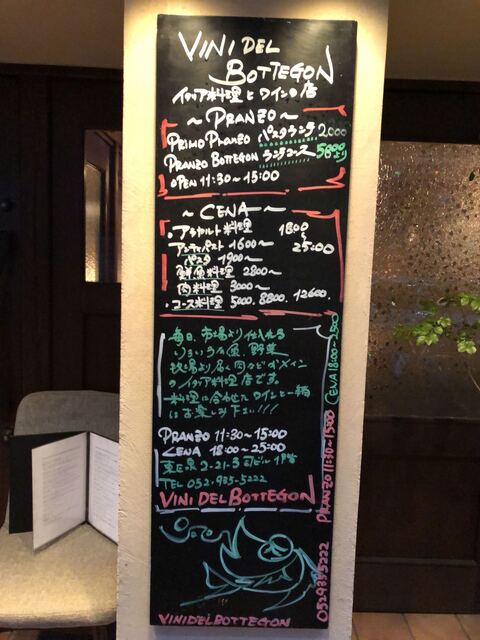 VINI DEL
BOTTEGON
イタリア料理とワインの店
～PRANZO～
PRIMO PRANZO パスタランチ 2000
PRANZO BOTTEGON ランチコース 5800より
OPEN 11:30～15:00
～CENA～
・アラカルト料理 1800～25:00
アンティパスト 1600～
パスタ 1900～
鮮魚料理 2800～
肉料理 3000～
・コース料理 5000. 8800. 12600.
毎日、市場より仕入れる
いろいろな魚、野菜
牧場より届く肉などがメイン
のイタリア料理店です。
料理に合わせたワインと一緒
にお楽しみ下さい!!!
PRANZO 11:30～15:00
CENA 18:00～25:00
東区泉2-21-3 1階
TEL 052-935-5222
VINI DEL BOTTEGON
VINIDELBOTTEGON
0529355222 PRANZO 11:30～15:00 CENA 18:00～2500